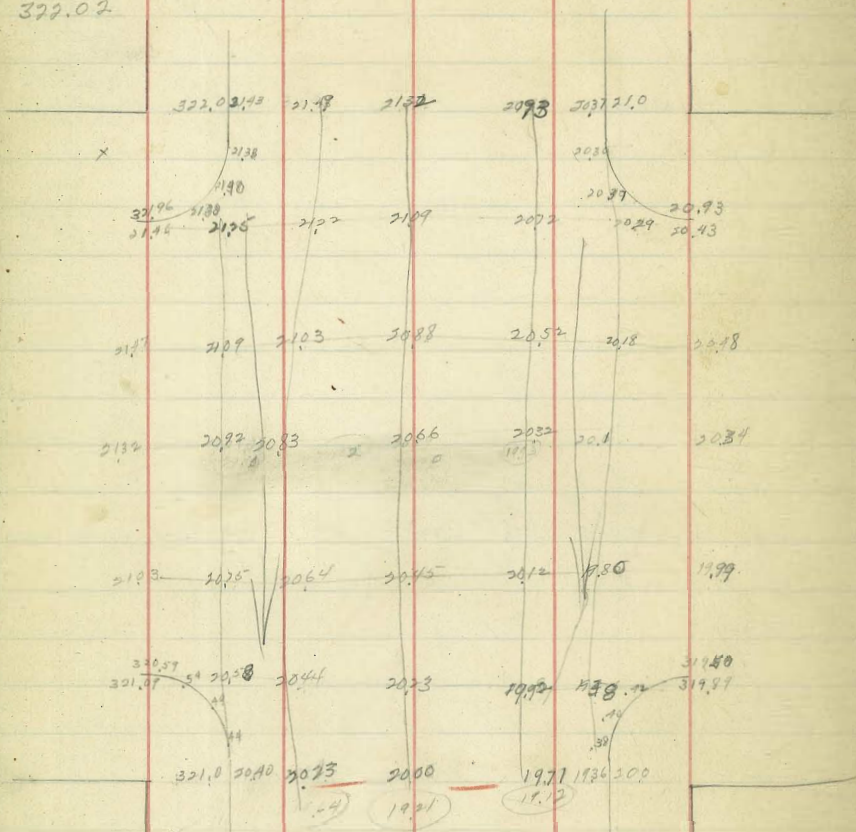 322.02
322.0 21.43 21.48 2132 2093 2037 21.0
x 2138 2030
2140 2039
321.96 2138 20.93
21.46 2125 2122 2109 2072 2029 20.43
2147 2109 2103 2088 2052 20.18 20.48
2132 2092 2083 2066 2032 20.1 20.34
2103 2075 2064 2045 2012 19.80 19.99
320.59
321.09 .54 20.58 2044 2023 19.92 .42 319.89
.44 .40
.44 .38
321.0 20.40 2023 2000 19.77 1936 200
19.21 19.12